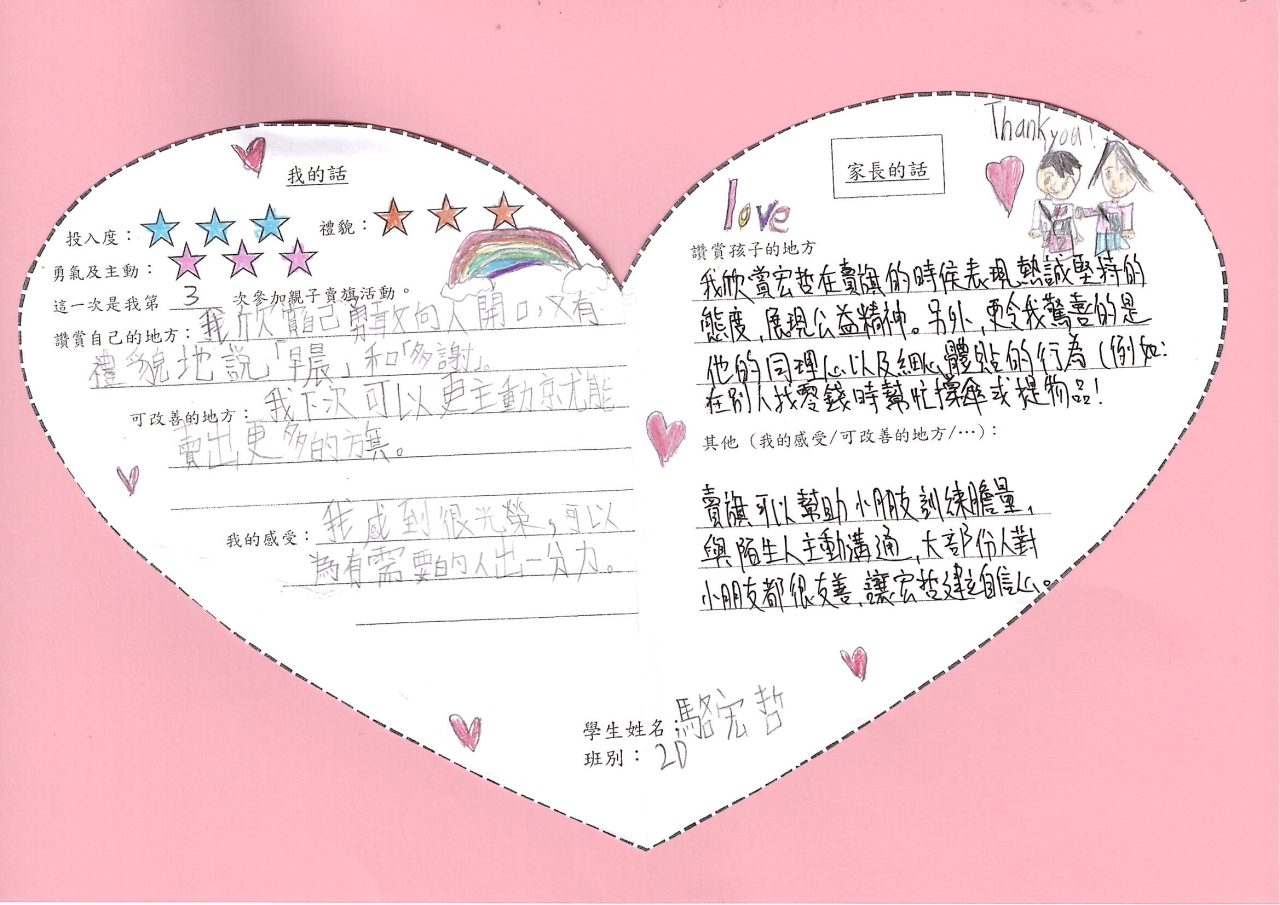 我的話
投入度：
禮貌：
勇氣及主動：
這一次是我第 3 次參加親子賣旗活動。
讚賞自己的地方：我欣賞自己勇敢向人開口，又有
禮貌地說「早晨」和「多謝」。
可改善的地方：我下次可以更主動京尤能
賣出更多的旗。
我的感受：我感到很光榮，可以
為有需要的人出一分力。
Thank you!
家長的話
love
讚賞孩子的地方
我欣賞宏哲在賣旗的時侯表現熱誠堅持的
態度，展現公益精神。另外，更令我驚喜的是
他的同理心以及細心體貼的行為（例如：
在別人找零錢時幫忙撐傘或提物品！
其他（我的感受/可改善的地方/…）：
賣旗可以幫助小朋友訓練膽量，
與陌生人主動溝通，大部份人對
小朋友都很友善，讓宏哲建立自信心。
學生姓名：駱宏哲
班別：2D